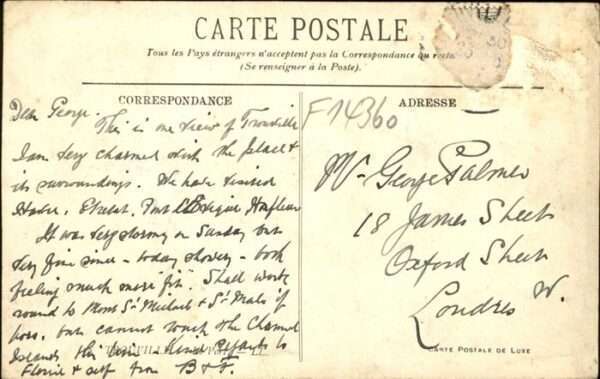 CARTE POSTALE
Tous les Pays étrangers n'acceptent pas la Correspondance au recto
(Se renseigner à la Poste).
CORRESPONDANCE
Dear George.
This is one view of Trouville
I am very charmed with the place &
its surroundings. We have visited
Havre, Etretat, Honfleur
It was very stormy on Sunday but
very fine since - today showery - both
feeling much more fit. Shall work
round to Mont St Michael & St Malo if
poss. but cannot touch the Channel
Islands this time - Kind regards to
Florrie & self from B & F.
F14360
ADRESSE
Mr George Palmer
18 James Street
Oxford Street
Londres W.
CARTE POSTALE DE LUXE